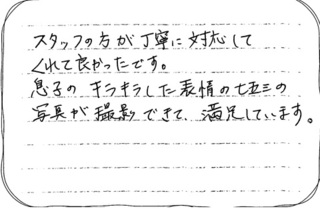 スタッフの方が丁寧に対応して
くれて良かったです。
息子のキラキラした表情の七五三の
写真が撮影できて、満足しています。